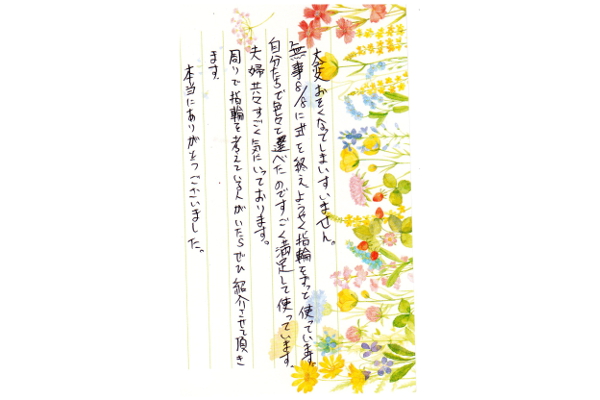 大変おそくなってしまいすいません。
無事8/8に式を終え、ようやく指輪をずっと使っています。
自分たちで色々と選べたのですごく満足して使っています。
夫婦共々すごく気にいっております。
周りで指輪を考えている人がいたらぜひ紹介させて頂き
ます。
本当にありがとうございました。